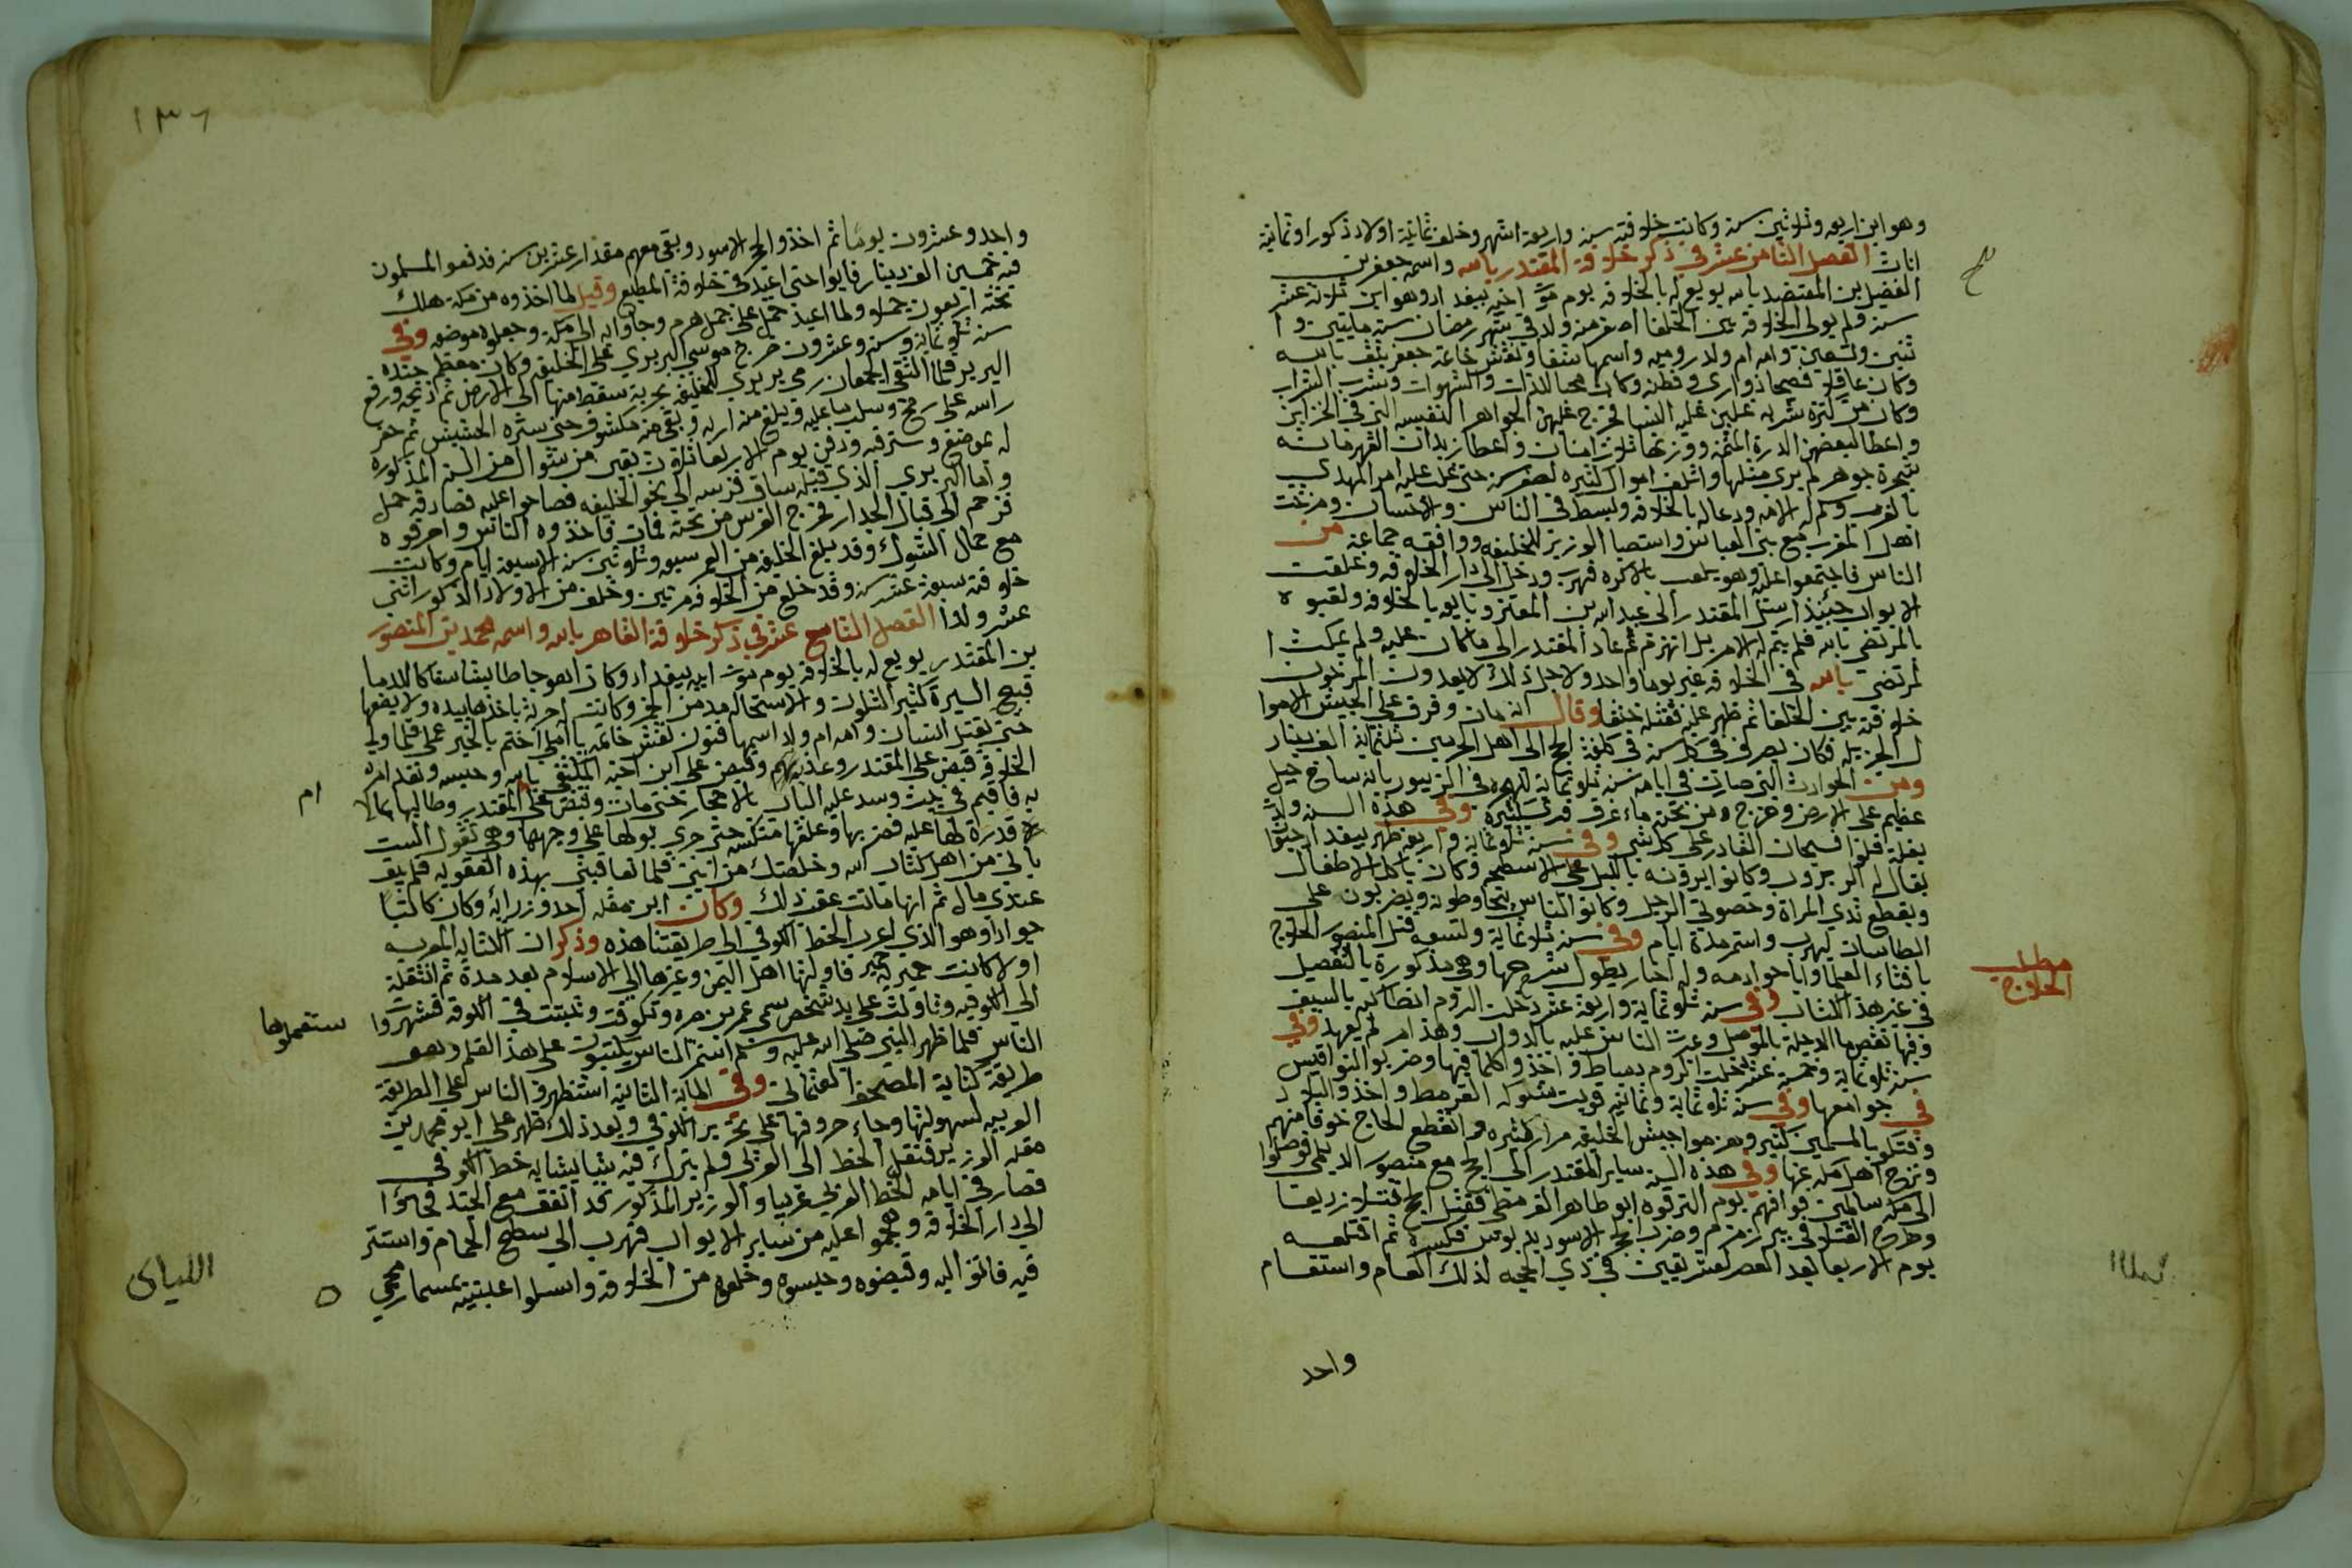 وهو ابن اربعه وثلوثين سنه وكانت خلوفته سنه واربعة اشهر وخلف ثمانية اولاد ذكورا وثمانية
اناث الفصل الثامن عشر في ذكر خلوفة المقتدر بالله واسمه جعفر بن
الفضل بن المعتضد بالله بويع له بالخلوفه يوم موت اخيه ببغداد وهو ابن ثلوثة عشر
سنه ولم يولى الخلوفة من الخلفا اصغر منه ولد في شهر رمضان سنه مايتين وا
ثنين وثمنين وامه ام ولد روميه واسمها شغفا ونقش خاتمه جعفر يثق بالله
وكان عاقلو فصيحا ذو اري وفطنه وكان محبا للذات والشهوات وشرب الشراب
وكان من كثرة شربه غلبن عليه النسا فخرج عليهن الجواهر النفيسه التي في الخزاين
واعطا لبعضهن الدرة اليتمه ووزنها ثلوث امنات واعطا زيدان القهرمانه
سبحة جوهر لم يرى مثلها واتلف اموال كثيره لصغر سنه حتى غلب عليه امر المهدي
بالغرب وسلم له الامه ودعا له بالخلوفه وبسط في الناس والاحسان ومرخت
اهل المغرب مع بني العباس واستصبا الوزير للخليفه ووافقه جماعة من
الناس فاجتمعوا عليه وهو يلعب بالاكره فهرب ودخل الى دار الخلوفه وغلقت
الابواب حينئذ ارسل المقتدر الى عبد الله بن المعتز وبايوه بالخلوفه ولقبوه
بالمرتضى بالله فلم يتم له الامر بل انهزم ثم عاد المقتدر الى ماكان عليه ولم يمكث ا
لمرتضى بالله في الخلوفه غير يوما واحد ولاجل ذلك لا يعدون المرخون
خلوفته بين الخلفا ثم ظهر عليه فقتله خنقا وقال انه مان وفرق على الجيش الاموا
ل الجزيله فكان يصرف في كل سنه في كلفة الحج الى اهل الحرمين ثلثماية الف دينار
ومن الحوادث التي صارت في ايامه سنه ثلوثماية ظهره في الزبيور بانه ساخ جبل
عظيم على الارض وخرج من تحته ماء غرف قرى كثيره وفي هذه السنه ولدت
بغلة فلوا فسبحان القادر على كل شي وفي سنه ثلوثماية واربعه ظهر ببغداد حيوان
يقال له الزبزوب وكانوا يرونه بالليل على الاسطحه وكان ياكل الاطفال
ويقطع ثدي المراة وخصوتي الرجل وكانوا الناس يتحاوطونه ويضربون على
الطاسات ليهرب واستمر مدة ايام وفي سنه ثلوثماية وتسعه قتل المنصور الحلوج
بافتاء العلما واباحوا دمه وله اخبار يطول شرحها وهي مذكورة بالتفصيل
في غير هذا الكتاب وفي سنه ثلوثماية واربعة عشر دخلت الروم انطاكيه بالسيف
وفيها نقص ما الدجلة بالموصل وعدت الناس عليه بالدواب وهذا امر لم يعهد وفي
سنه ثلوثماية وخمسة عشر دخلت الروم دمياط واخذوا كلما فيها وضربوا النواقيس
في جوامعها وفي سنه ثلوثماية وثمانيه قويت شوكه القرمط واخذوا البلود
وفتكو بالمسلمين كثير وهزموا جيش الخليفه مرار كثيره وانقطع الحاج خوفا منهم
ونزح اهل مكه عنها وفي هذه السنه سار المقتدر الى الحج مع منصور الديلمي فوصلوا
الى مكه سالمين فوافهم يوم التروقه ابو طاهر القرمطي فقتل الحج قتلو زريعا
وطرح القتلى في بير زمزم وضرب الحجر الاسود بدبوس فكسره ثم اقتلعه
يوم الاربعا بعد العصر لعشر بقين في ذي الحجه لذلك العام واستقام
واحد
مطلب
الحلوج
١٣٦
واحد وعشرون يوما ثم اخذوا الحجر الاسود وبقى معهم مقدار عشرين سنه فدفعو المسلمون
فيه خمسين الف دينار فابوا حتى اعيد في خلوفة المطيع وقيل لما اخذوه من مكة هلك
تحته اربعون جملو ولما اعيد حمل على جمل هرم وجاوا به الى مكه وجعلوه موضعه وفي
سنه ثلوثماية وسته وعشرون خرج موسى البربري على الخليفه وكان معظم جنده
البربر فلما التقى الجمعان رمى بربري للخليفه بحربة سقط منها الى الارض ثم ذبحه ورفع
راسه على رمح وسلب ثيابه وبلغ من ارله وبقى جثه مكشوفه حتى ستره الحشيش ثم حفر
له موضعه وسترقه ودفن يوم الاربعا لثلوث بقين من شوال من السنه المذكوره
واما البربري الذي قتله ساق فرسه الى نحو الخليفه فصاحوا عليه فصادفه حمل
فزحم الى قبال الجدار فخرج الفرس من تحته فمات فاخذوه الناس واحرقوه
مع حمال الشوك وقد بلغ الخليفه من العمر سبعه وثلوثين سنه الا سبعة ايام وكانت
خلوفته سبعة عشر سنه وقد خلع من الخلوفه مرتين وخلف من الاولاد الذكور اثني
عشر ولدا الفصل التاسع عشر في ذكر خلوفة القاهر بالله واسمه محمد بن المنصور
بن المقتدر بويع له بالخلوفه يوم موت ابيه ببغداد وكان اهوجا طايشا سفاكا للدما
قبيح السيرة كثير التلون والاستحاله مدمن الخمر وكانت له حربة ياخذها بيده ولا يضعها
حتى يقتل انسان وامه ام ولد اسمها فتون نقش خاتمه يا الهي اختم بالخير عملي فلما ولى
الخلوفه قبض على المقتدر وعذبهم وقبض على ابن اخيه المكتفي بالله وحبسه ونقد امره
به فاقيم في بيت وسد عليه الباب بالاحجار حتى مات وقبض على ام المقتدر وطالبها بما لا
قدرة لها عليه فضربها وعلقها منكسه حتى جري بولها على وجهها وهي تقول الست
بابني من اهل كتاب الله وخلصتك من ابني فلما تعاقبني بهذه العقوبه فلم يبق
عندي مال ثم انها ماتت عقب ذلك وكان ابن مقله احد وزرائه وكان كاتبا
جوادا وهو الذي اعرب الخط الكوفي الى طريقتنا هذه وذكر ان الكتابه العربيه
اولا كانت حميريه فناولتها اهل اليمن وغيرها الى الاسلوم بعد مدة ثم انتقلة
الى الكوفيه وناولت على يد شخص يسمى عمر بن مره وتكوفت وثبتت في الكوفة فشهروا
الناس فلما ظهر النبي صلى الله عليه وسلم استمر الناس يكتبون على هذا القلم وهو
ستعملوها
طريقة كتابة المصحف العثماني وفي الماية الثانية استظهروا الناس على الطريقة
العربيه لسهولتها وجاء حروفها على تحرير الكوفي وبعد ذلك ظهر على ابو محمد بن
مقله الوزير فنقل الخط الى العربي ولم يترك فيه شيا يشابه خط الكوفي
فصار في ايامه الخط العربي غريبا والوزير المذكور قد اتفق مع الجند فجاؤا
الى دار الخلوفه وهجموا عليه من ساير الابواب فهرب الى سطح الحمام واستتر
فيه فاتوا اليه وقبضوه وحبسوه وخلعوه من الخلوفه واسلوا عينيه بمسمار محمي